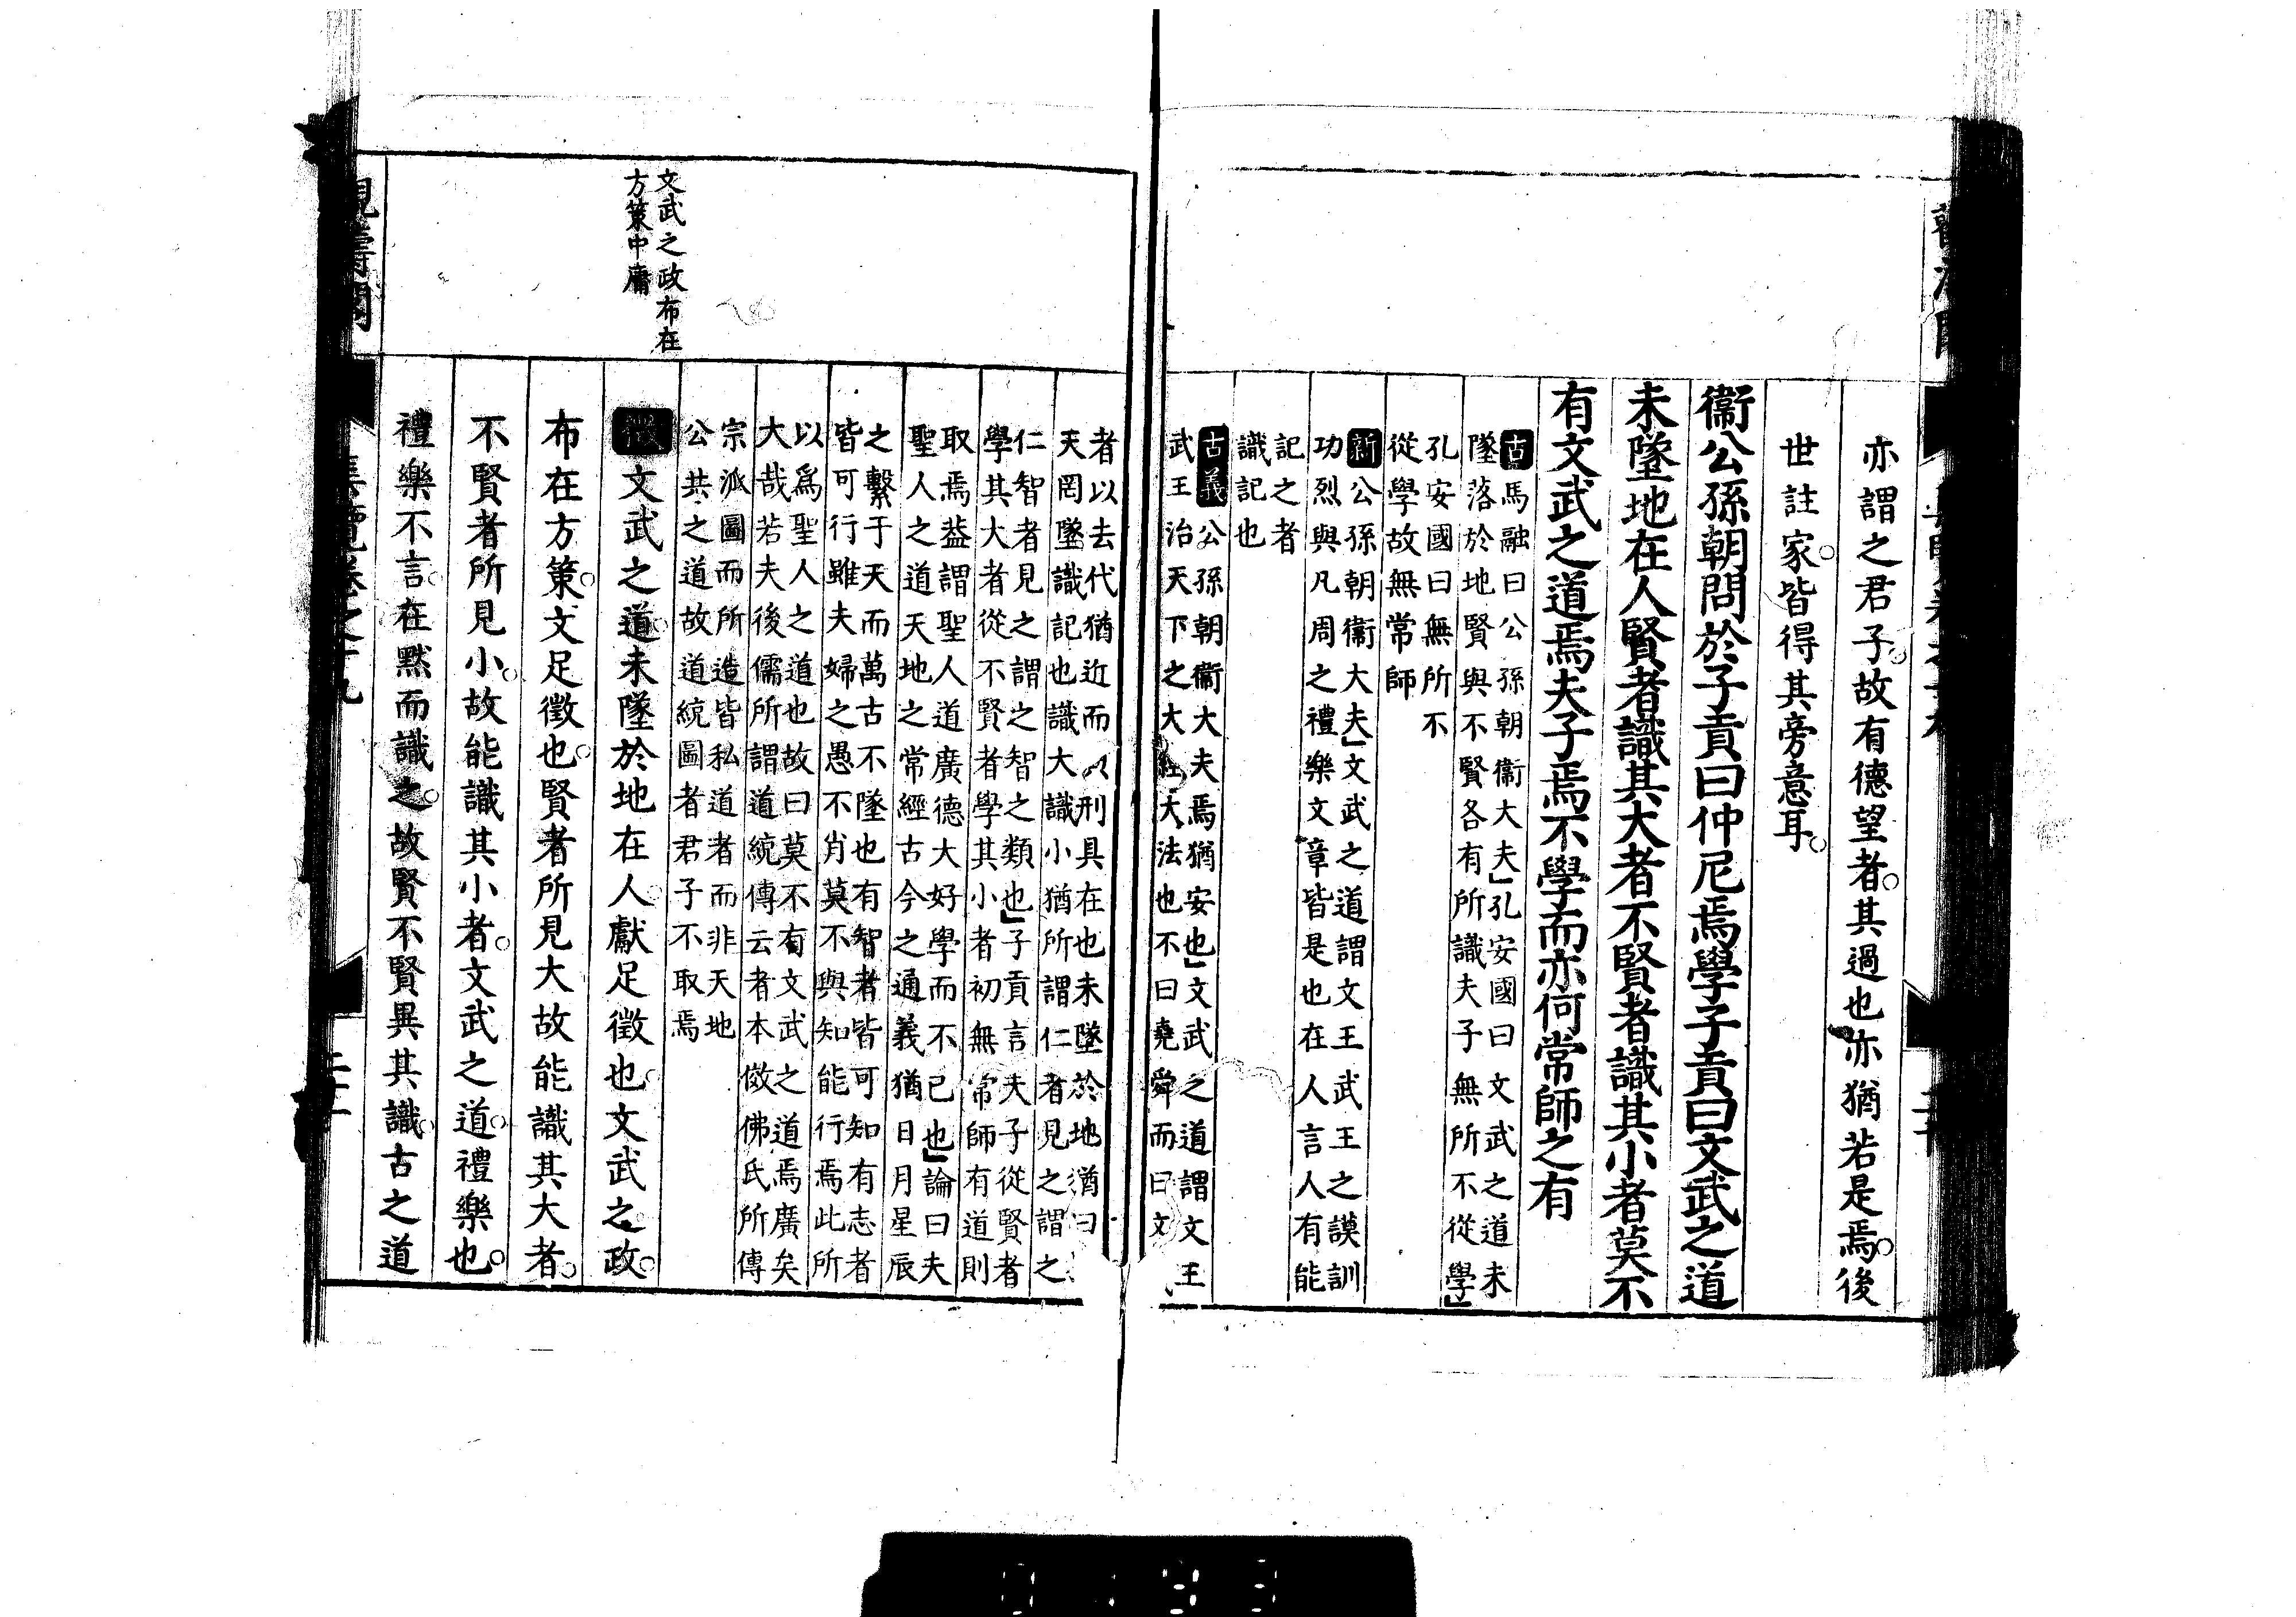 亦謂之君子故有德望者其過也亦猶若是焉後
世註家皆得其旁意耳
衞公孫朝問於子貢曰仲尼焉學子貢曰文武之道
未墜地在人賢者識其大者不賢者識其小者莫不
有文武之道焉夫子焉不學而亦何常師之有
古馬融曰公孫朝衞大夫」孔安國曰文武之道未
墜落於地賢與不賢各有所識夫子無所不從學」
孔安國曰無所不
從學故無常師
新公孫朝衞大夫」文武之道謂文王武王之謨訓
功烈與凡周之禮樂文章皆是也在人言人有能
記之者
識記也
古義公孫朝衞大夫焉猶安也」文武之道謂文王
武王治天下之大經大法也不曰堯舜而曰文
者以去代猶近而刑具在也未墜於地猶曰
天罔墜識記也識大識小猶所謂仁者見之謂之
仁智者見之謂之智之類也」子貢言夫子從賢者
學其大者從不賢者學其小者初無常師有道則
取焉益謂聖人道廣德大好學而不已也」論曰夫
聖人之道天地之常經古今之通義猶日月星辰
之繫于天而萬古不墜也有智者皆可知有志者
皆可行雖夫婦之愚不肖莫不與知能行焉此所
以爲聖人之道也故曰莫不有文武之道焉廣矣
大哉若夫後儒所謂道統傳云者本傚佛氏所傳
宗派圖而所造皆私道者而非天地
公共之道故道統圖者君子不取焉
文武之政布在
方策中庸
徵文武之道未墜於地在人獻足徵也文武之政
布在方策文足徵也賢者所見大故能識其大者
不賢者所見小故能識其小者文武之道禮樂也
禮樂不言在默而識之故賢不賢異其識古之道